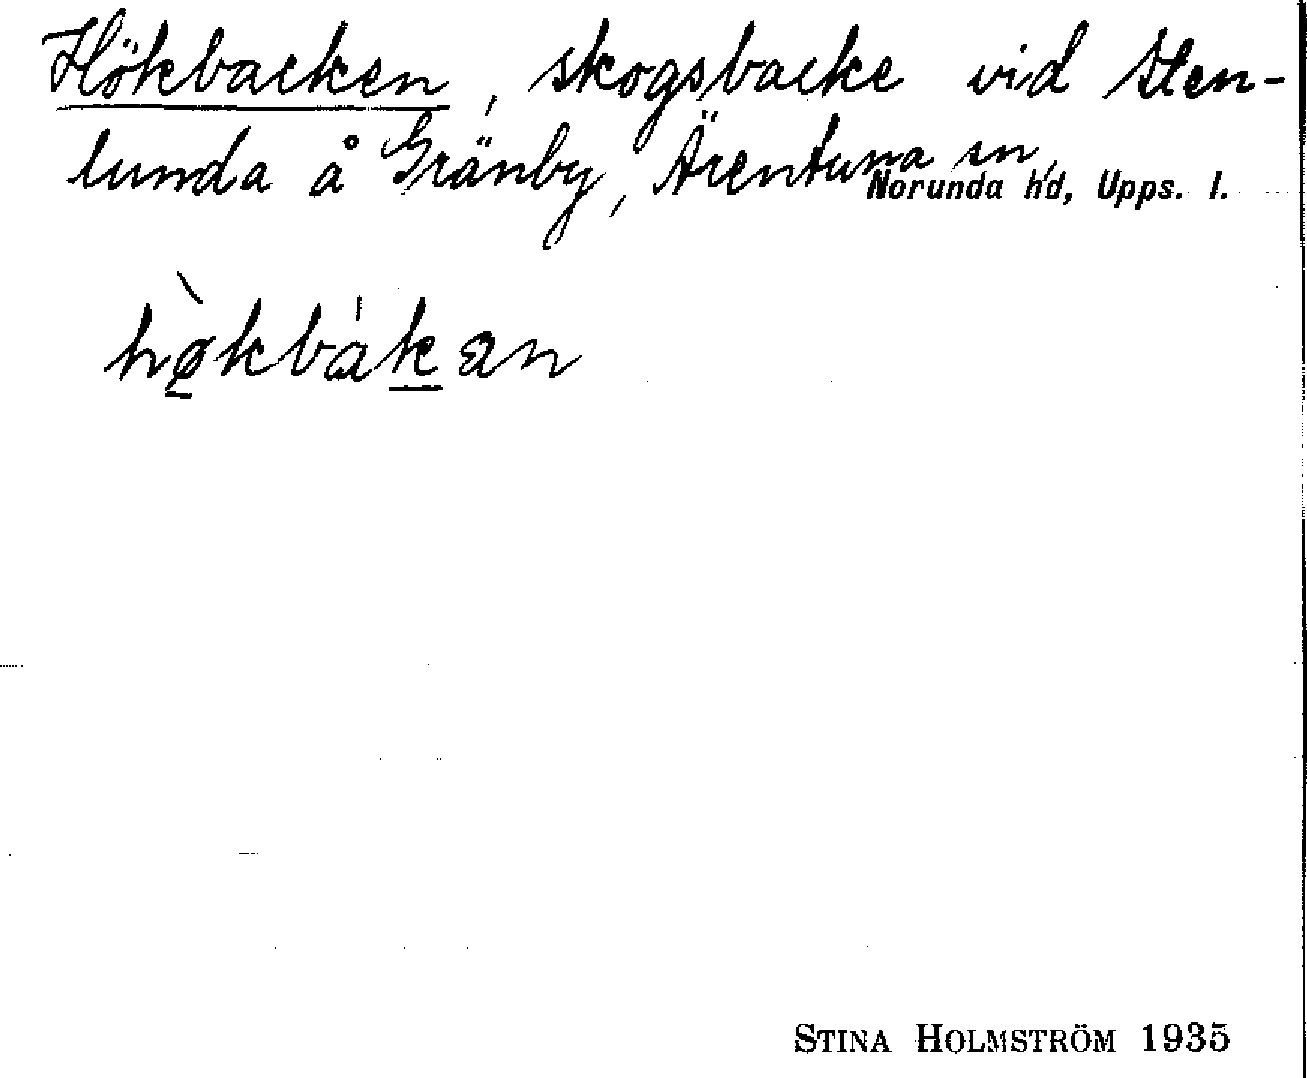 Hökbacken, skogsbacke vid Sten-
lunda å Gränby, Ärentuna sn,
Norunda hd, Upps. l.
hø̀kbákan
STINA HOLMSTRÖM 1935